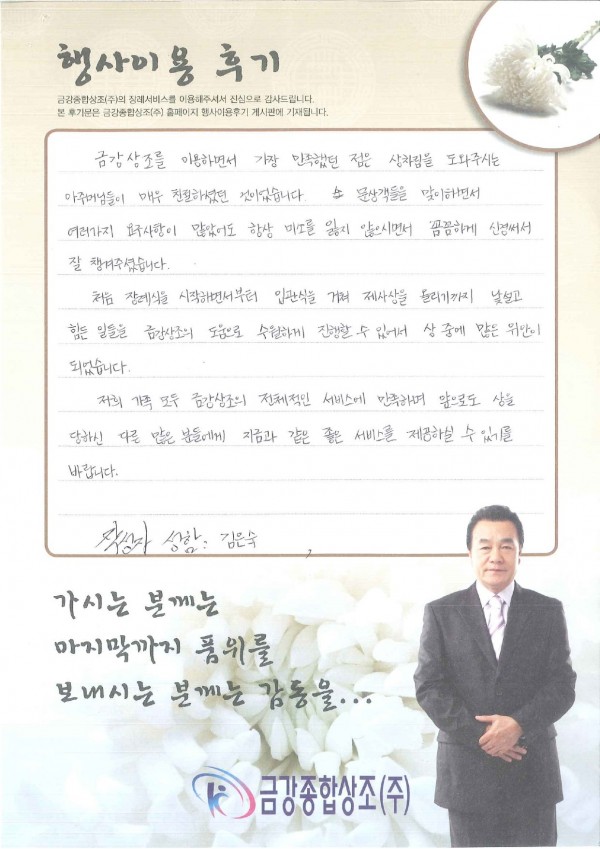 행사이용 후기
금강종합상조(주)의 장례서비스를 이용해주셔서 진심으로 감사드립니다.
본 후기문은 금강종합상조(주) 홈페이지 행사이용후기 게시판에 기재됩니다.
금강상조를 이용하면서 가장 만족했던 점은 상차림을 도와주시는
아주머님들이 매우 친절하셨던 것이었습니다. 문상객들을 맞이하면서
여러가지 요구사항이 많았어도 항상 미소를 잃지 않으시면서 꼼꼼하게 신경써서
잘 챙겨주셨습니다.
처음 장례식을 시작하면서부터 입관식을 거쳐 제사상을 올리기까지 낯설고
힘든 일들을 금강상조의 도움으로 수월하게 진행할 수 있어서 상 중에 많은 위안이
되었습니다.
저희 가족 모두 금강상조의 전체적인 서비스에 만족하며 앞으로도 상을
당하신 다른 많은 분들에게 지금과 같은 좋은 서비스를 제공하실 수 있기를
바랍니다.
작성자 성함: 김은숙
가시는 분께는
마지막까지 품위를
보내시는 분께는 감동을...
금강종합상조(주)